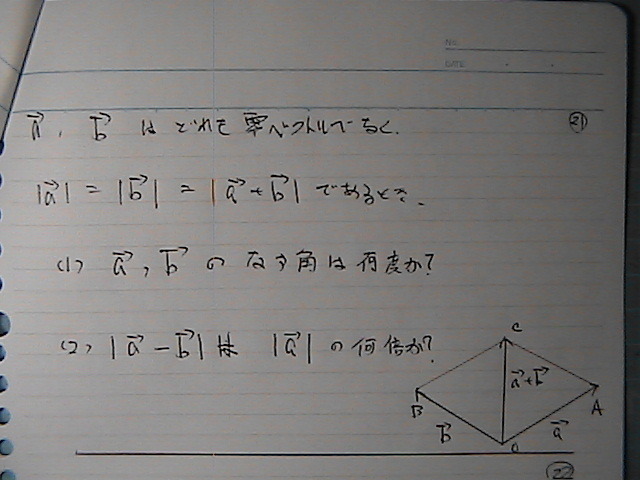 NO.
DATE
a→, b→ は どれも 零ベクトルでなく、
㉑
|a→| = |b→| = |a→+b→| であるとき、
(1) a→, b→ の なす角は 何度か?
(2) |a→-b→| は |a→| の 何倍か?
C
a→+b→
B
A
b→
a→
O
㉒